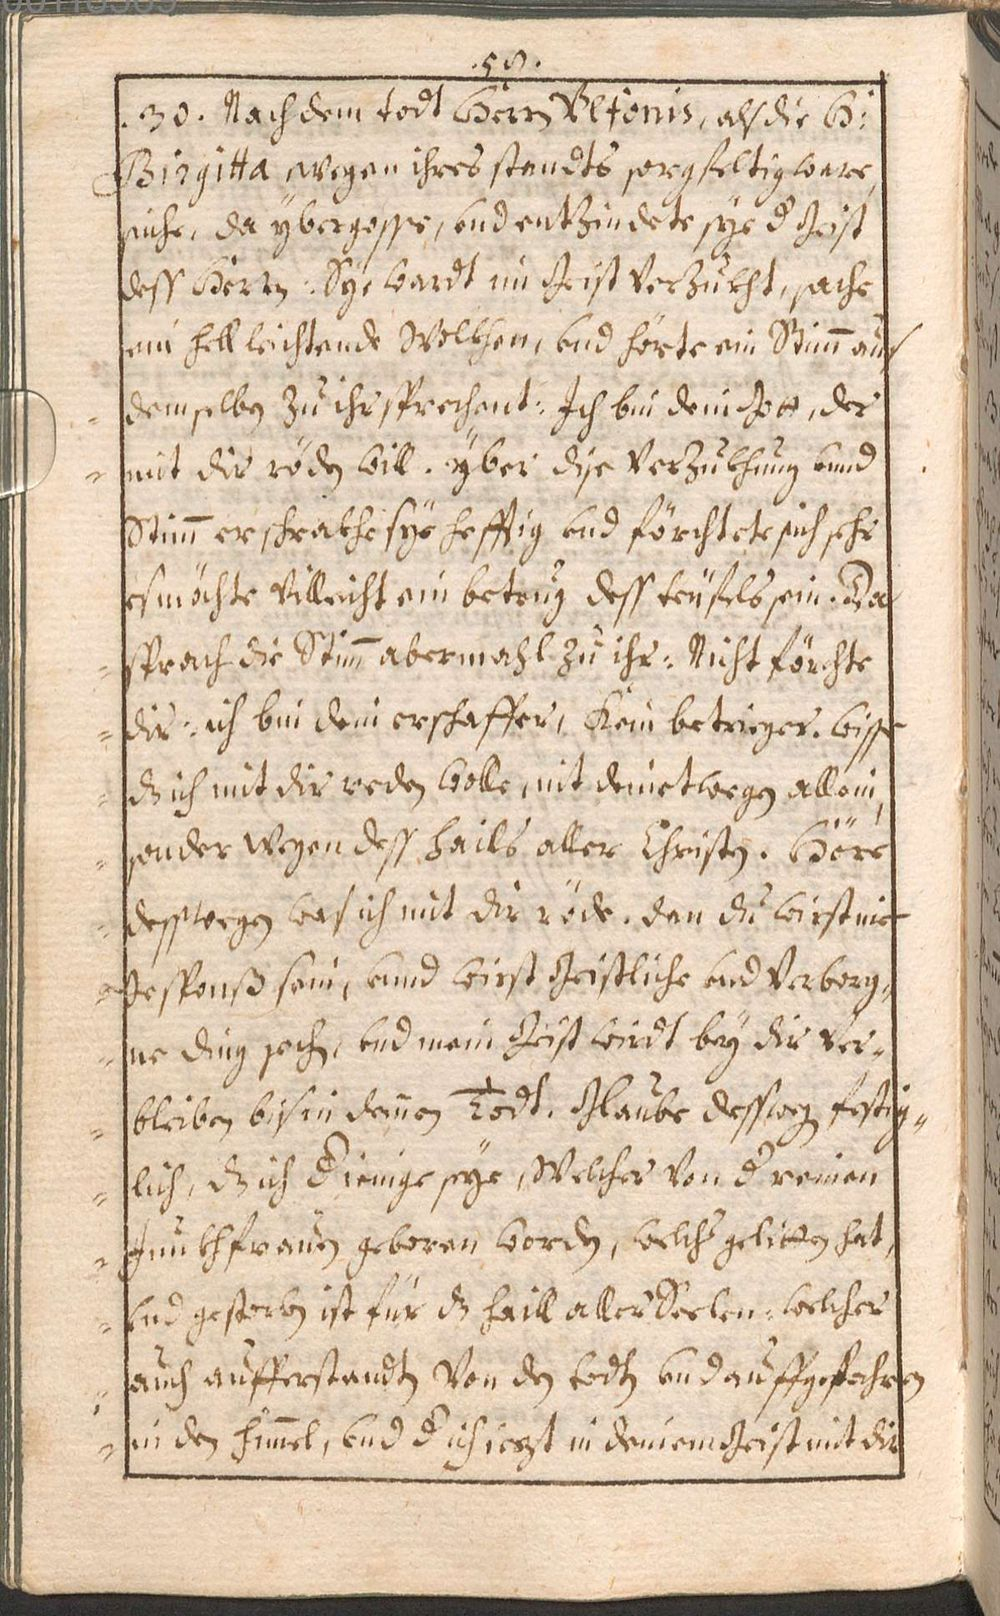 .50.
.30. Nach dem todt Herrn Vlfonis, als die H:
Birgitta wegen ihres standts sorgfeltig ware,
siehe, da ybergosse, vnd entzindete sye d Geist
dess Herrn: Sye wardt im Geist verzukht, sache
ein hell leichtende Wolkhen, vnd hörte ein Stim̄ aus
demselben zu ihr sprechent: Ich bin dein Gott, der
mit dir röden will. yber dise verzukhung vnnd
Stim̄ erschrakhe sye hefftig vnd förchtete sich sehr
es möchte villeicht ein betrug dess teüfels sein. Da
sprach die Stim̄ abermahl zu ihr: Nicht förchte
dir: ich bin dein erschaffer, Kein betrieger. wisse
dz ich mit dir reden wolle, nit deinetwegen allein,
sonder wegen dess hails aller Christen. Höre
desswegen was ich mit dir röde. dan du wirst mein
Gesponß sein, vnnd wirst Geistliche vnd verborg„
ne ding sechen, vnd mein Geist wirdt bey dir ver„
bleiben bis in deinen Todt. Glaube dessweg festig„
lich, dz ich dienige seye, Welcher von d reinen
Junkhfrauen geboren worden, welcher gelitten hat,
vnd gestorben ist für dz haill aller Seelen: welcher
auch aufferstandten von den todten vnd auffgefahren
in den him̄el, vnd d ich iezt in deinem Geist mit dir